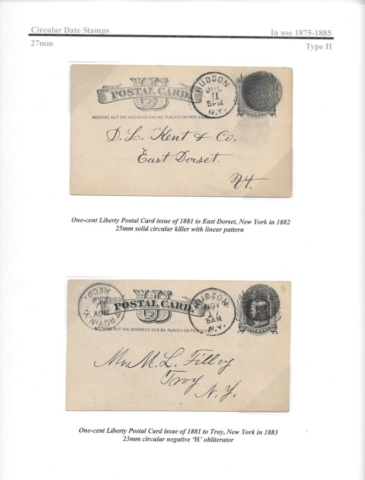 Circular Date Stamps
In use 1875-1885
27mm
Type II
POSTAL CARD.
NOTHING BUT THE ADDRESS CAN BE PLACED ON THIS SIDE
HUDSON
JUL
11
5PM
N.Y.
D. L. Kent & Co.
East Dorset.
Vt.
One-cent Liberty Postal Card issue of 1881 to East Dorset, New York in 1882
25mm solid circular killer with linear pattern
RECD.
TROY N.Y.
NOV
POSTAL CARD.
NOTHING BUT THE ADDRESS CAN BE PLACED ON THIS SIDE
HUDSON
NOV
17
5AM
N.Y.
Mrs M. L. Filley
Troy
N. Y.
One-cent Liberty Postal Card issue of 1881 to Troy, New York in 1883
23mm circular negative 'H' obliterator